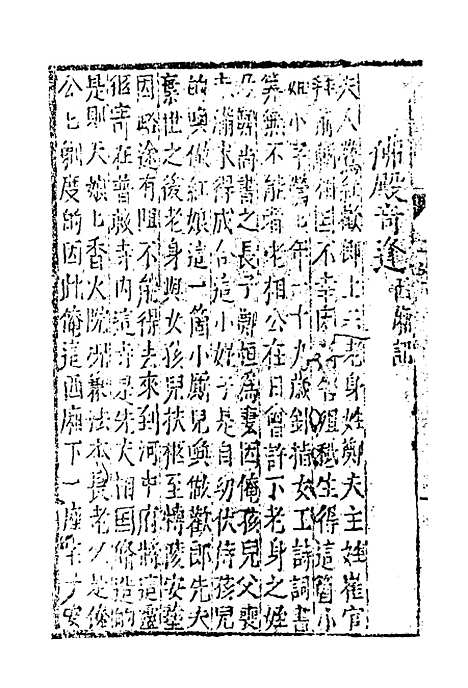 佛殿奇逢 西廂記
夫人鶯紅歡郎上云老身姓鄭夫主姓崔官
拜前朝相國不幸因病告殂秪生得這箇小
姐小字鶯鶯年一十九歲針指女工詩詞書
筭無不能者老相公在日曾許下老身之姪
乃鄭尚書之長子鄭恒爲妻因俺孩兒父喪
未滿未得成合這小妮子是自幼伏侍孩兒
的喚做紅娘這一箇小厮兒喚做歡郎先夫
棄世之後老身與女孩兒扶柩至博陵安塟
因路途有阻不能得去來到河中府將這靈
柩寄在普救寺内這寺是先夫相國修造的
是則天娘上香火院况兼法本長老又是俺
公上剃度的因此俺這西廂下一座宅子安